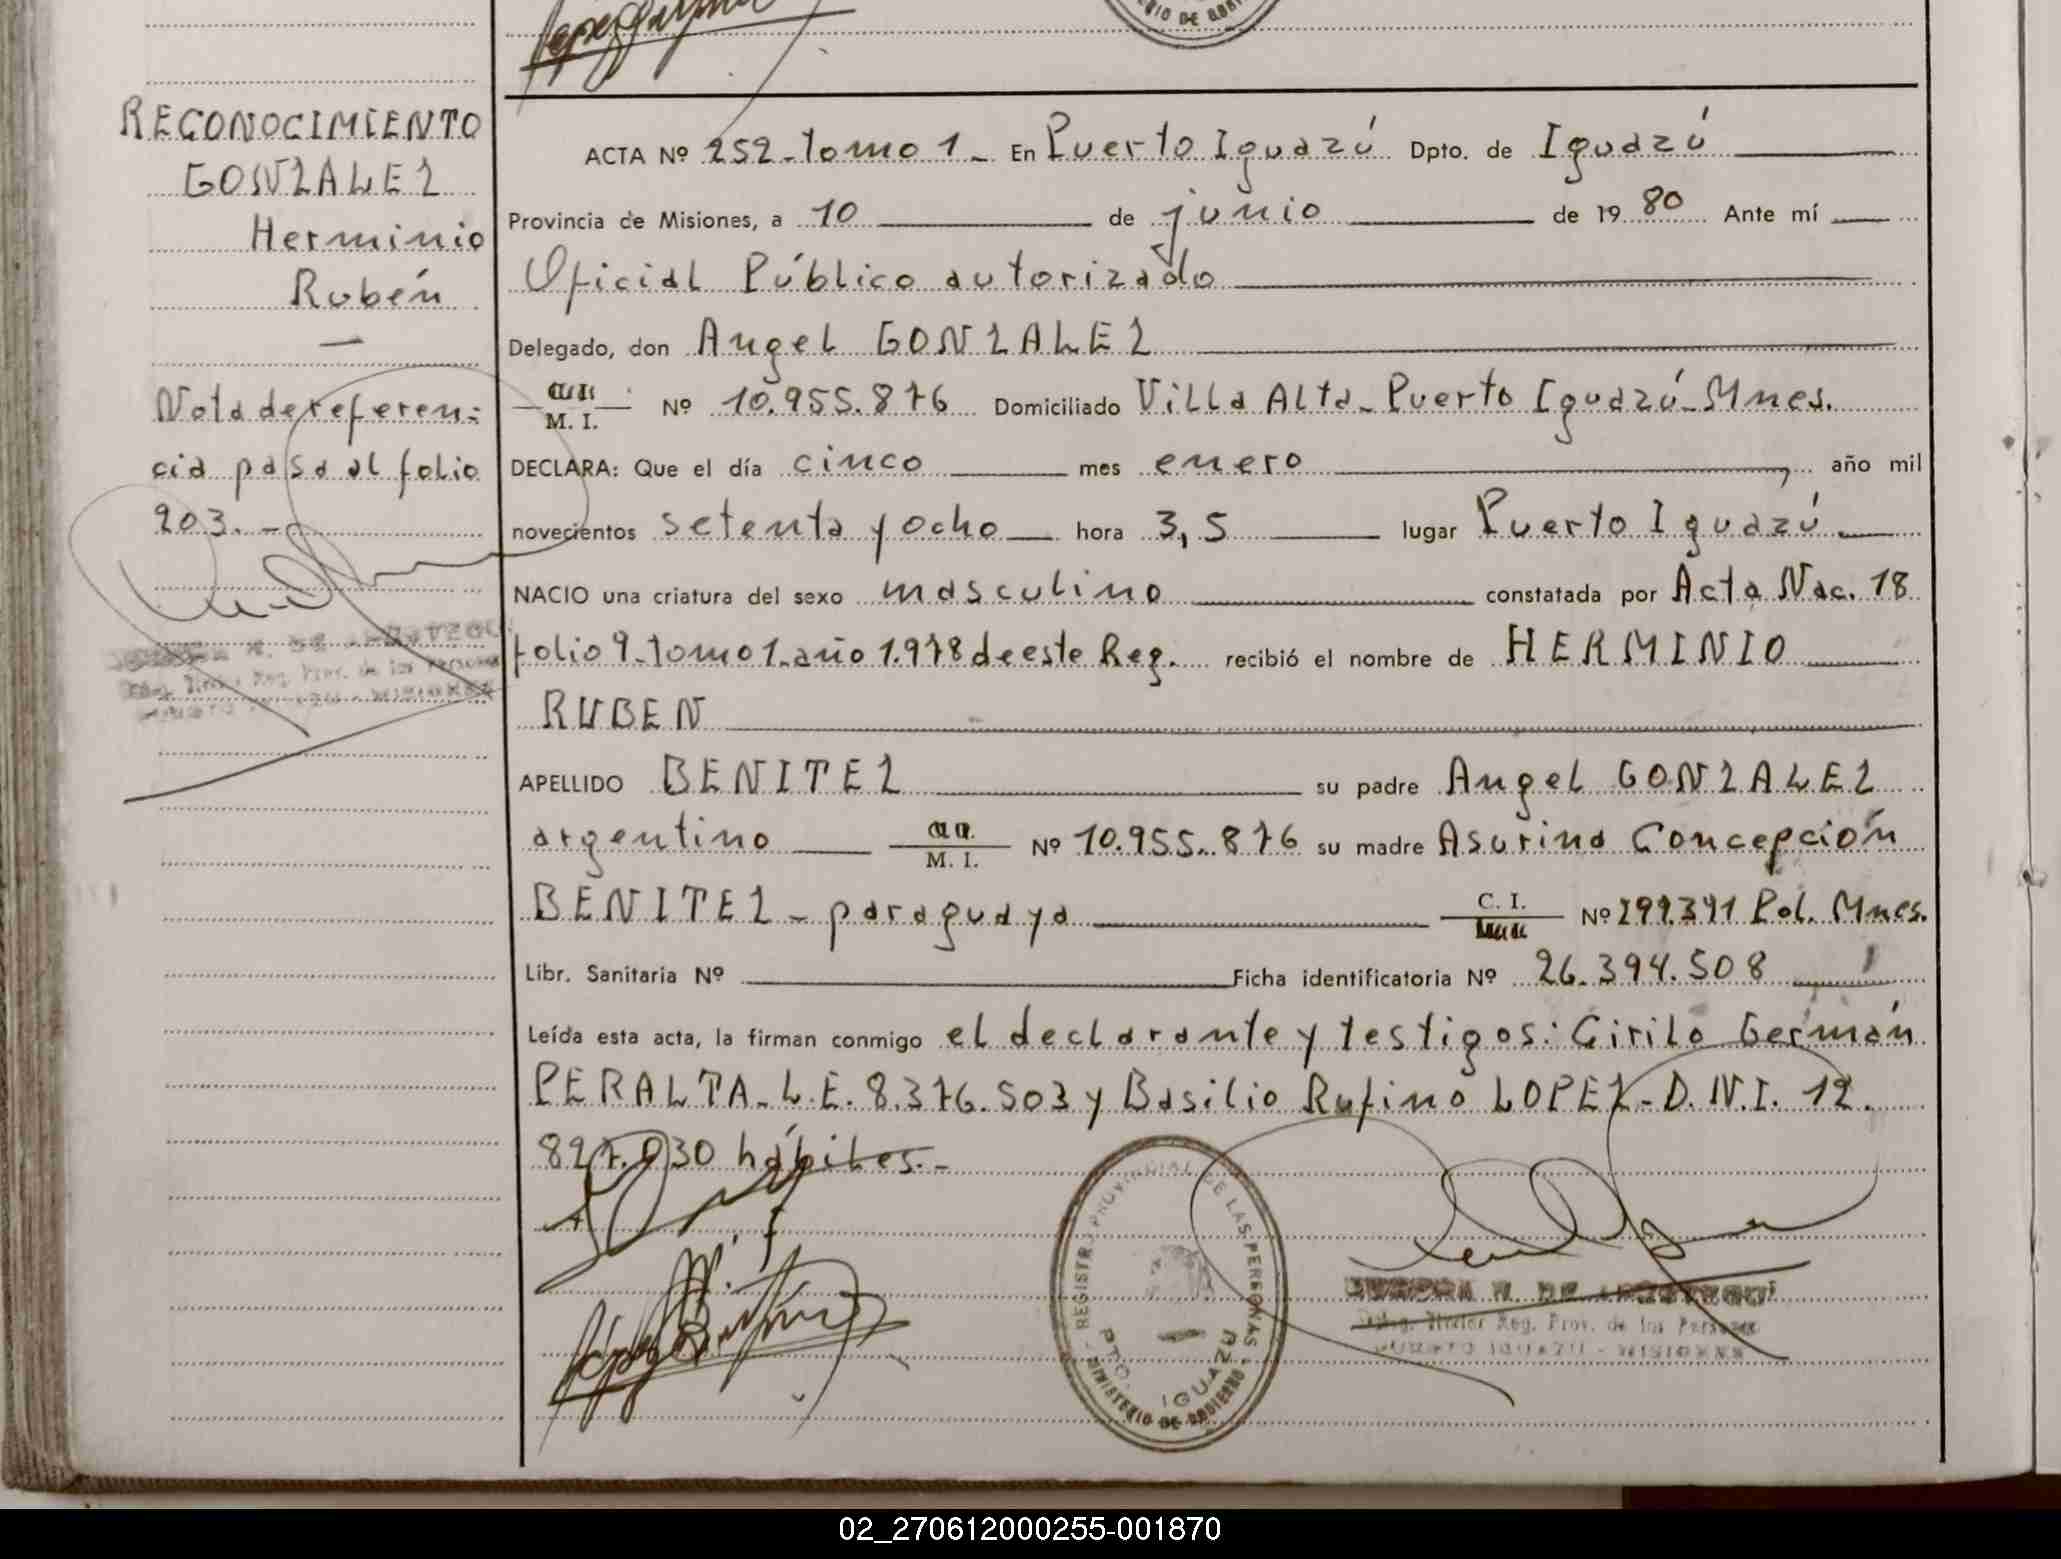 RECONOCIMIENTO
GONZALEZ
Herminio
Rubén
—
Nota de referen-
cia pasa al folio
203.-
ACTA Nº 252-Tomo 1- En Puerto Iguazú Dpto. de Iguazú
Provincia de Misiones, a 10 de junio de 1980 Ante mí
Oficial Público autorizado
Delegado, don Angel GONZALEZ
M. I. Nº 10.955.876 Domiciliado Villa Alta-Puerto Iguazú-Mnes.
DECLARA: Que el día cinco mes enero, año mil
novecientos setenta y ocho hora 3,5 lugar Puerto Iguazú
NACIO una criatura del sexo masculino constatada por Acta Nac. 18
folio 9-Tomo 1-año 1.978 de este Reg. recibió el nombre de HERMINIO
RUBEN
APELLIDO BENITEZ su padre Angel GONZALEZ
argentino M. I. Nº 10.955.876 su madre Asurina Concepción
BENITEZ - paraguaya C. I. Nº Pol. Mnes.
Libr. Sanitaria Nº Ficha identificatoria Nº 26.394.508
Leída esta acta, la firman conmigo el declarante y testigos: Cirilo Germán
PERALTA-L.E. 8.376.503 y Basilio Rufino LOPEZ-D.N.I. 12.
827.030 hábiles.-
REGISTRO PROVINCIAL DE LAS PERSONAS
PTO. IGUAZU
MINISTERIO DE GOBIERNO
Reg. Prov. de las Personas
PUERTO IGUAZU - MISIONES
02_270612000255-001870